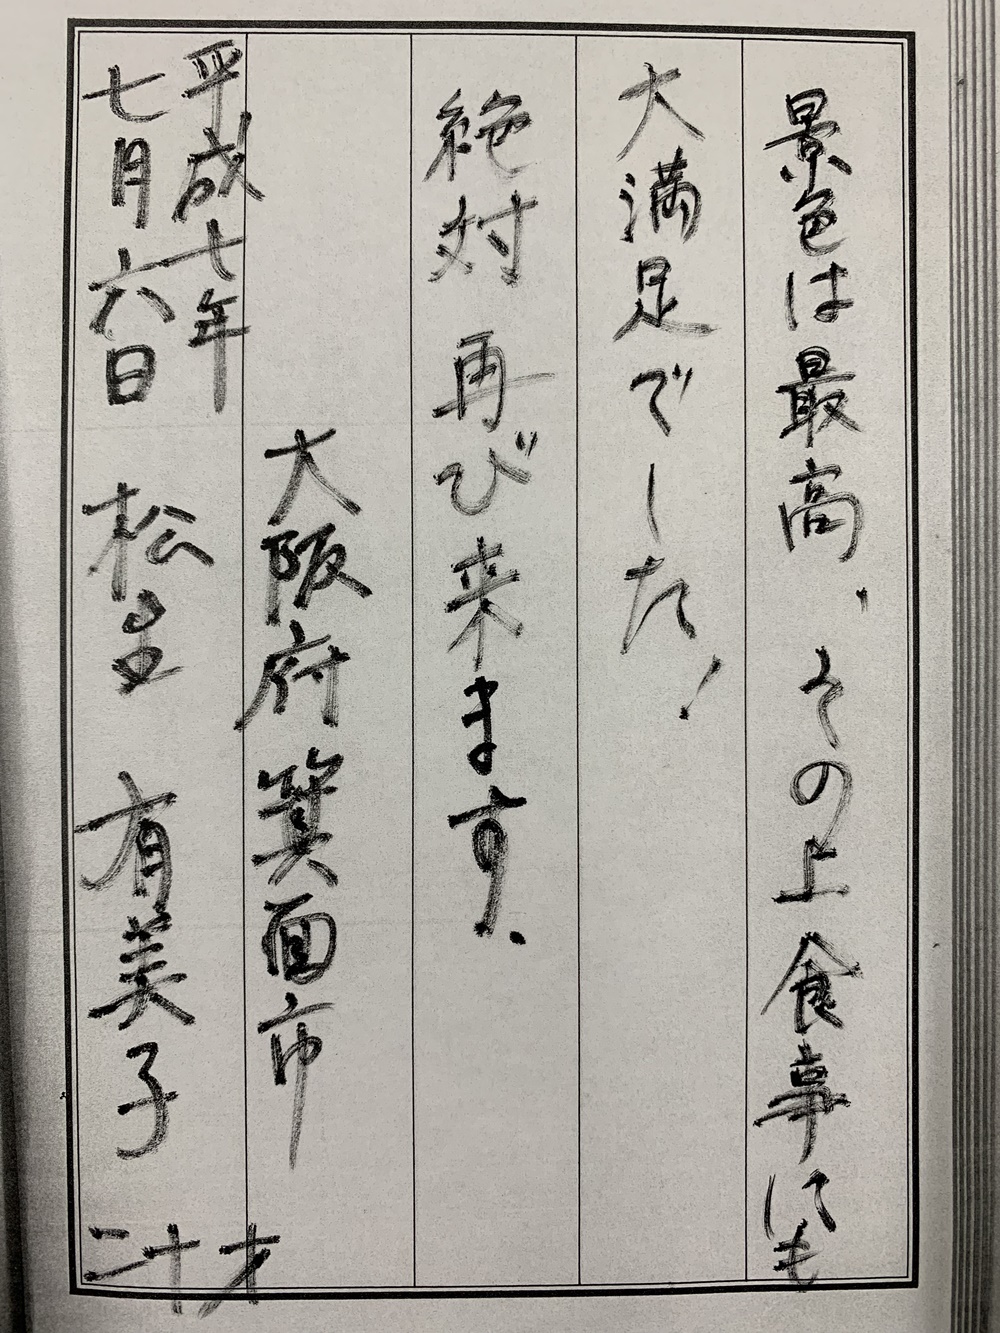 景色は最高、その上食事にも
大満足でした!
絶対再び来ます、
大阪府箕面市
平成七年
七月六日 松圭 有美子 二十才